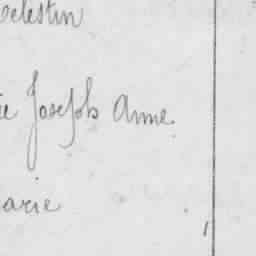 Celestin
ie Joseph Anne.
arie